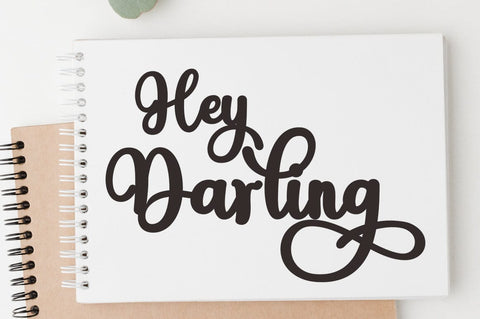 Hey
Darling